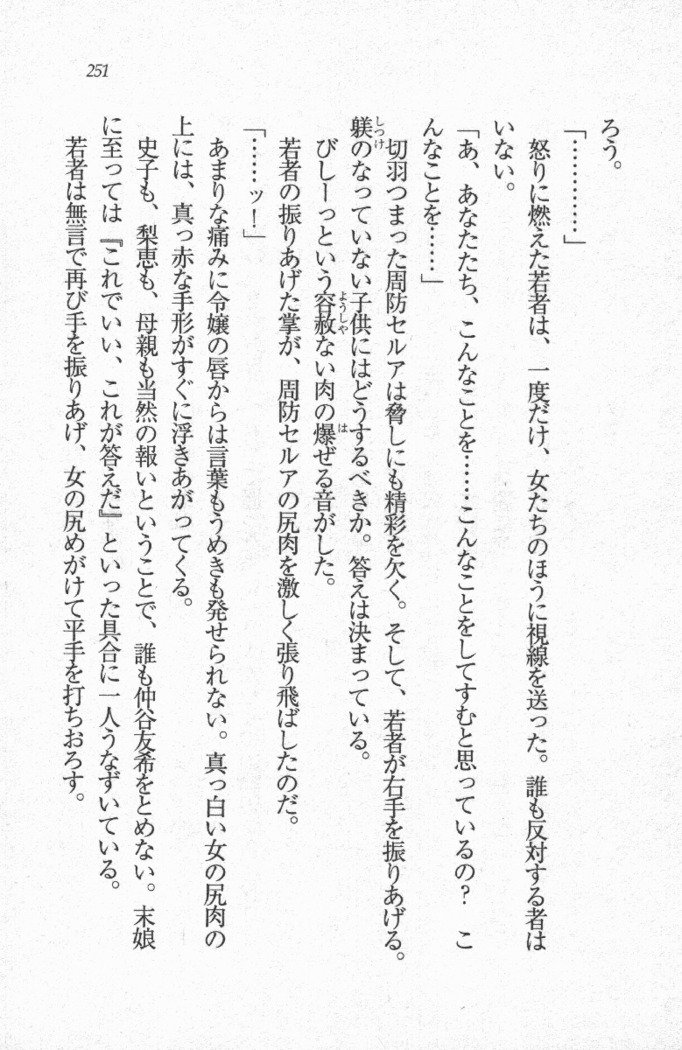 251
ろう。
「…………」
怒りに燃えた若者は、一度だけ、女たちのほうに視線を送った。誰も反対する者は
いない。
「あ、あなたたち、こんなことを……こんなことをしてすむと思っているの? こ
んなことを……」
切羽つまった周防セルアは脅しにも精彩を欠く。そして、若者が右手を振りあげる。
躾のなっていない子供にはどうするべきか。答えは決まっている。
びしーっという容赦ない肉の爆ぜる音がした。
若者の振りあげた掌が、周防セルアの尻肉を激しく張り飛ばしたのだ。
「……ッ!」
あまりな痛みに令嬢の唇からは言葉もうめきも発せられない。真っ白い女の尻肉の
上には、真っ赤な手形がすぐに浮きあがってくる。
史子も、梨恵も、母親も当然の報いということで、誰も仲谷友希をとめない。末娘
に至っては『これでいい、これが答えだ』といった具合に一人うなずいている。
若者は無言で再び手を振りあげ、女の尻めがけて平手を打ちおろす。